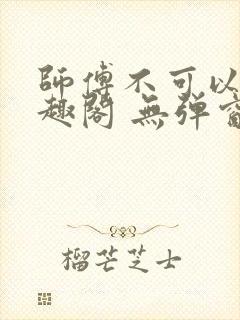 師傅不可以
趣閣 無彈窗
榴芒芝士